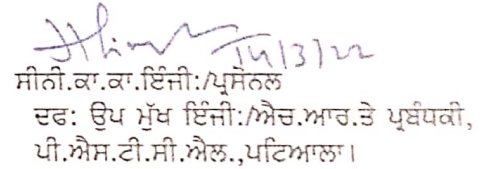 14/3/22
ਸੀਨੀ.ਕਾ.ਕਾ.ਇੰਜੀ:/ਪ੍ਰਸੋਨਲ
ਦਫ: ਉਪ ਮੁੱਖ ਇੰਜੀ:/ਐਚ.ਆਰ.ਤੇ ਪ੍ਰਬੰਧਕੀ,
ਪੀ.ਐਸ.ਟੀ.ਸੀ.ਐਲ.,ਪਟਿਆਲਾ।